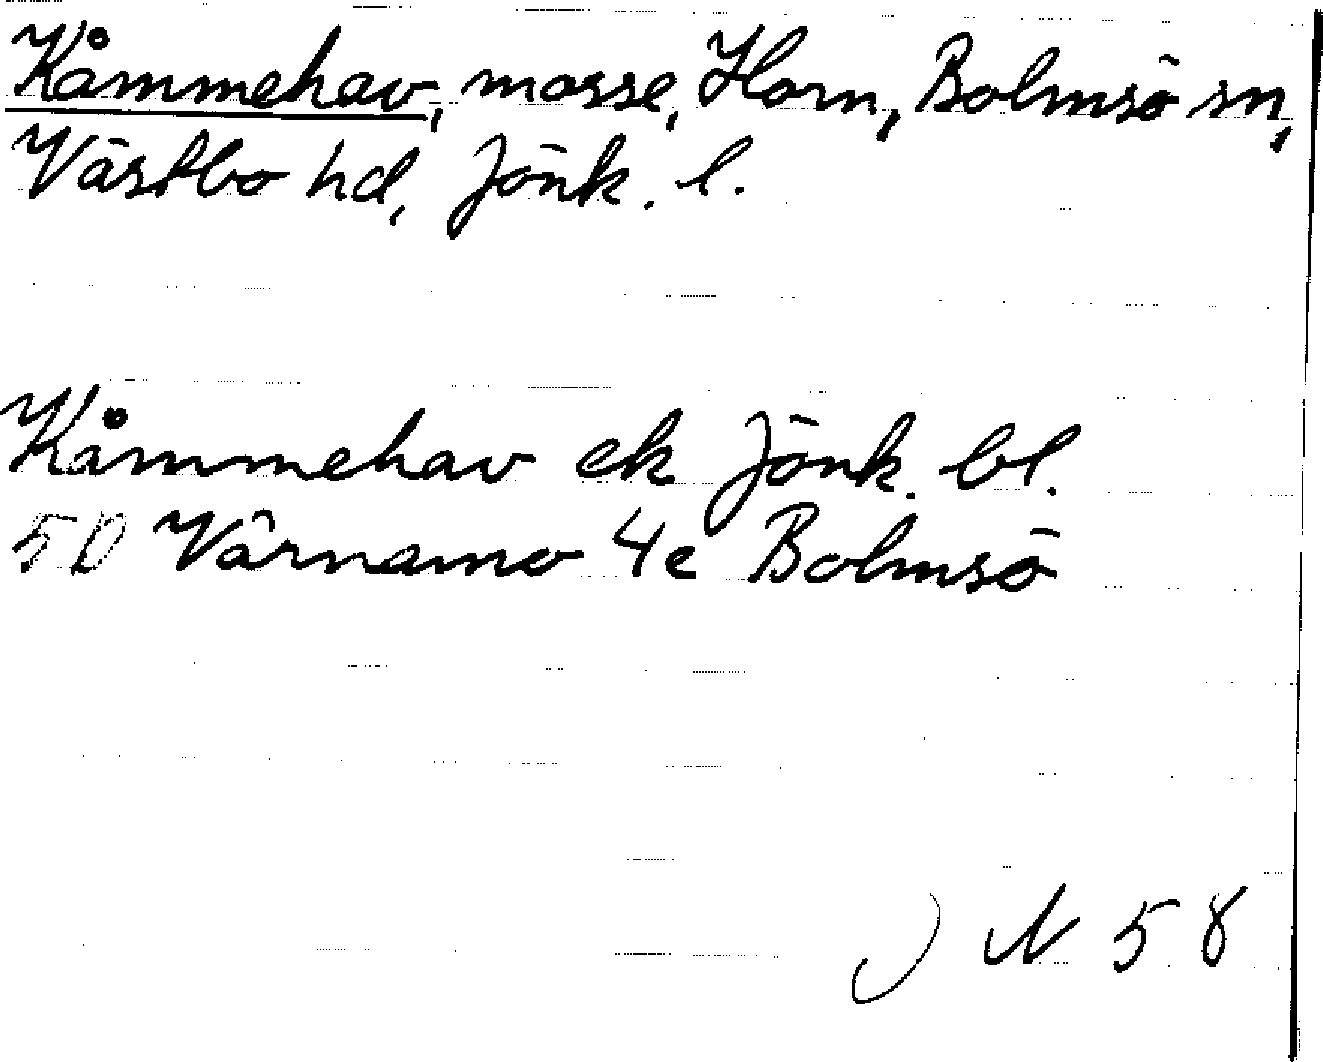 Kåmmehav, mosse, Horn, Bolmsö sn,
Västbo hd, Jönk. l.
Kåmmehav ek Jönk. bl.
5D Värnamo 4e Bolmsö
J N 58